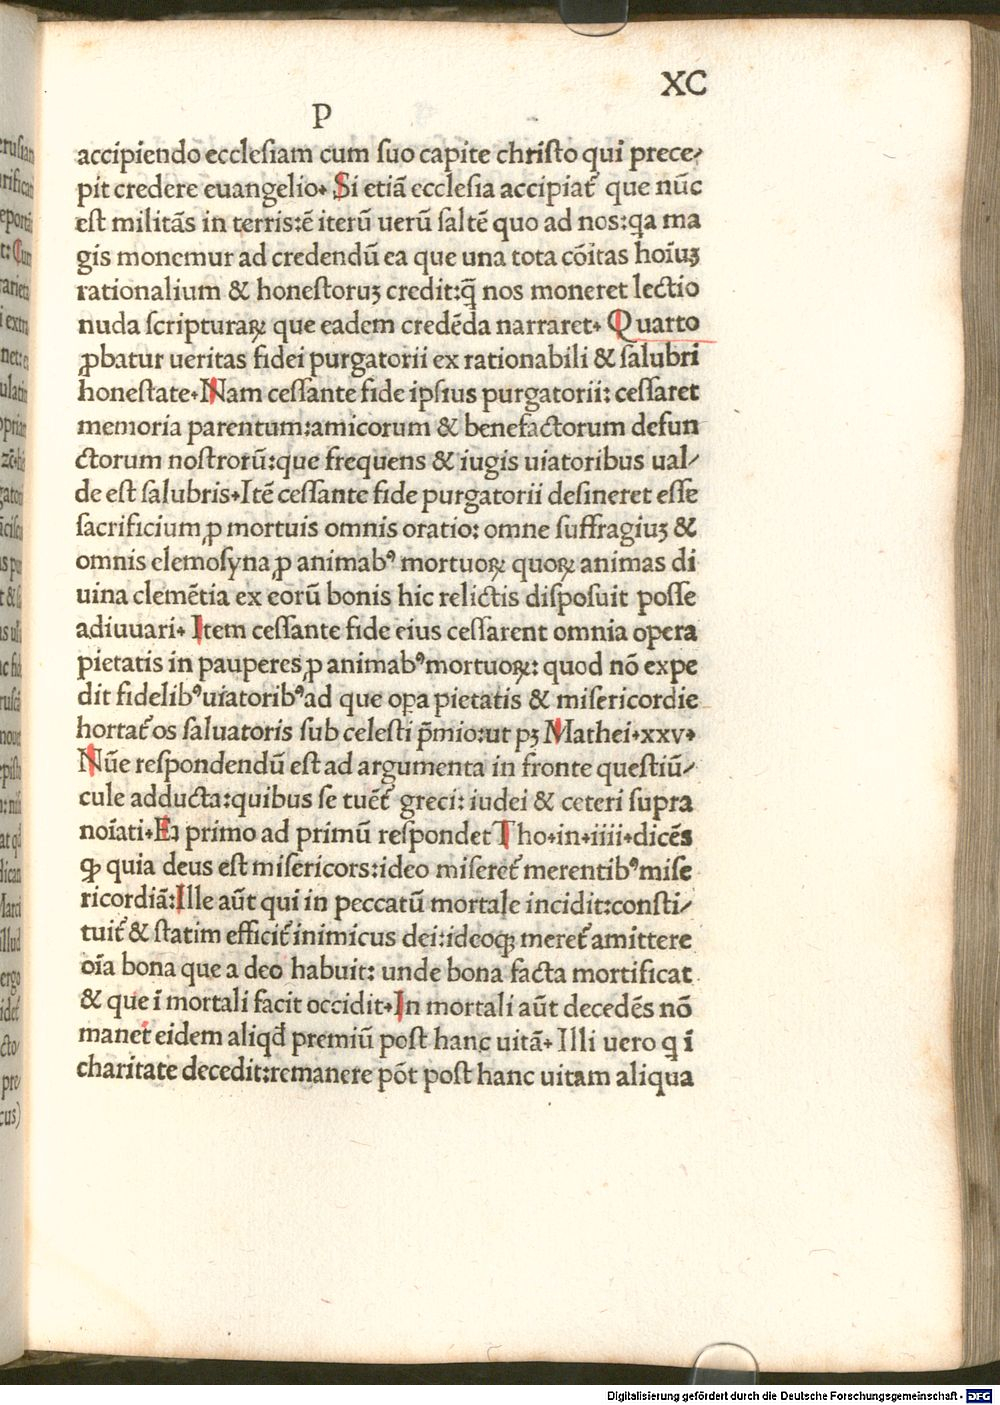 XC
P
accipiendo ecclesiam cum suo capite christo qui prece⸗
pit credere euangelio. Si etiã ecclesia accipiat᷑ que nũc
est militãs in terris:ẽ iterũ uerũ saltẽ quo ad nos:qa ma
gis monemur ad credendũ ea que una tota cõitas hoĩuꝫ
rationalium & honestoruꝫ credit:q̃ nos moneret lectio
nuda scripturaꝝ que eadem credẽda narraret. Quarto
ꝓbatur ueritas fidei purgatorii ex rationabili & salubri
honestate.Nam cessante fide ipsius purgatorii: cessaret
memoria parentum:amicorum & benefactorum defun
ctorum nostrorũ:que frequens & iugis uiatoribus ual⸗
de est salubris.Itẽ cessante fide purgatorii desineret esse
sacrificium ꝓ mortuis omnis oratio: omne suffragiuꝫ &
omnis elemosyna ꝓ animabꝰ mortuoꝝ quoꝝ animas di
uina clemẽtia ex eorũ bonis hic relictis disposuit posse
adiuuari. Item cessante fide eius cessarent omnia opera
pietatis in pauperes ꝓ animabꝰ mortuoꝝ: quod nõ expe
dit fidelibꝰ uiatoribꝰ ad que oꝑa pietatis & misericordie
hortat᷑ os saluatoris sub celesti p̃mio:ut pꝫ Mathei.xxv.
Nũc respondendũ est ad argumenta in fronte questiũ⸗
cule adducta:quibus se tuẽt᷑ greci: iudei & ceteri supra
noĩati.Eꝫ primo ad primũ respondet Tho.in.iiii.dicẽs
ꝙ quia deus est misericors:ideo miseret᷑ merentibꝰ mise
ricordiã:Ille aũt qui in peccatũ mortale incidit:consti⸗
tuit᷑ & statim efficit᷑ inimicus dei:ideoqꝫ meret᷑ amittere
oĩa bona que a deo habuit: unde bona facta mortificat
& que ĩ mortali facit occidit.In mortali aũt decedẽs nõ
manet eidem aliqđ premiũ post hanc uitã. Illi uero q ĩ
charitate decedit:remanere põt post hanc uitam aliqua
Digitalisierung gefördert durch die Deutsche Forschungsgemeinschaft - DFG